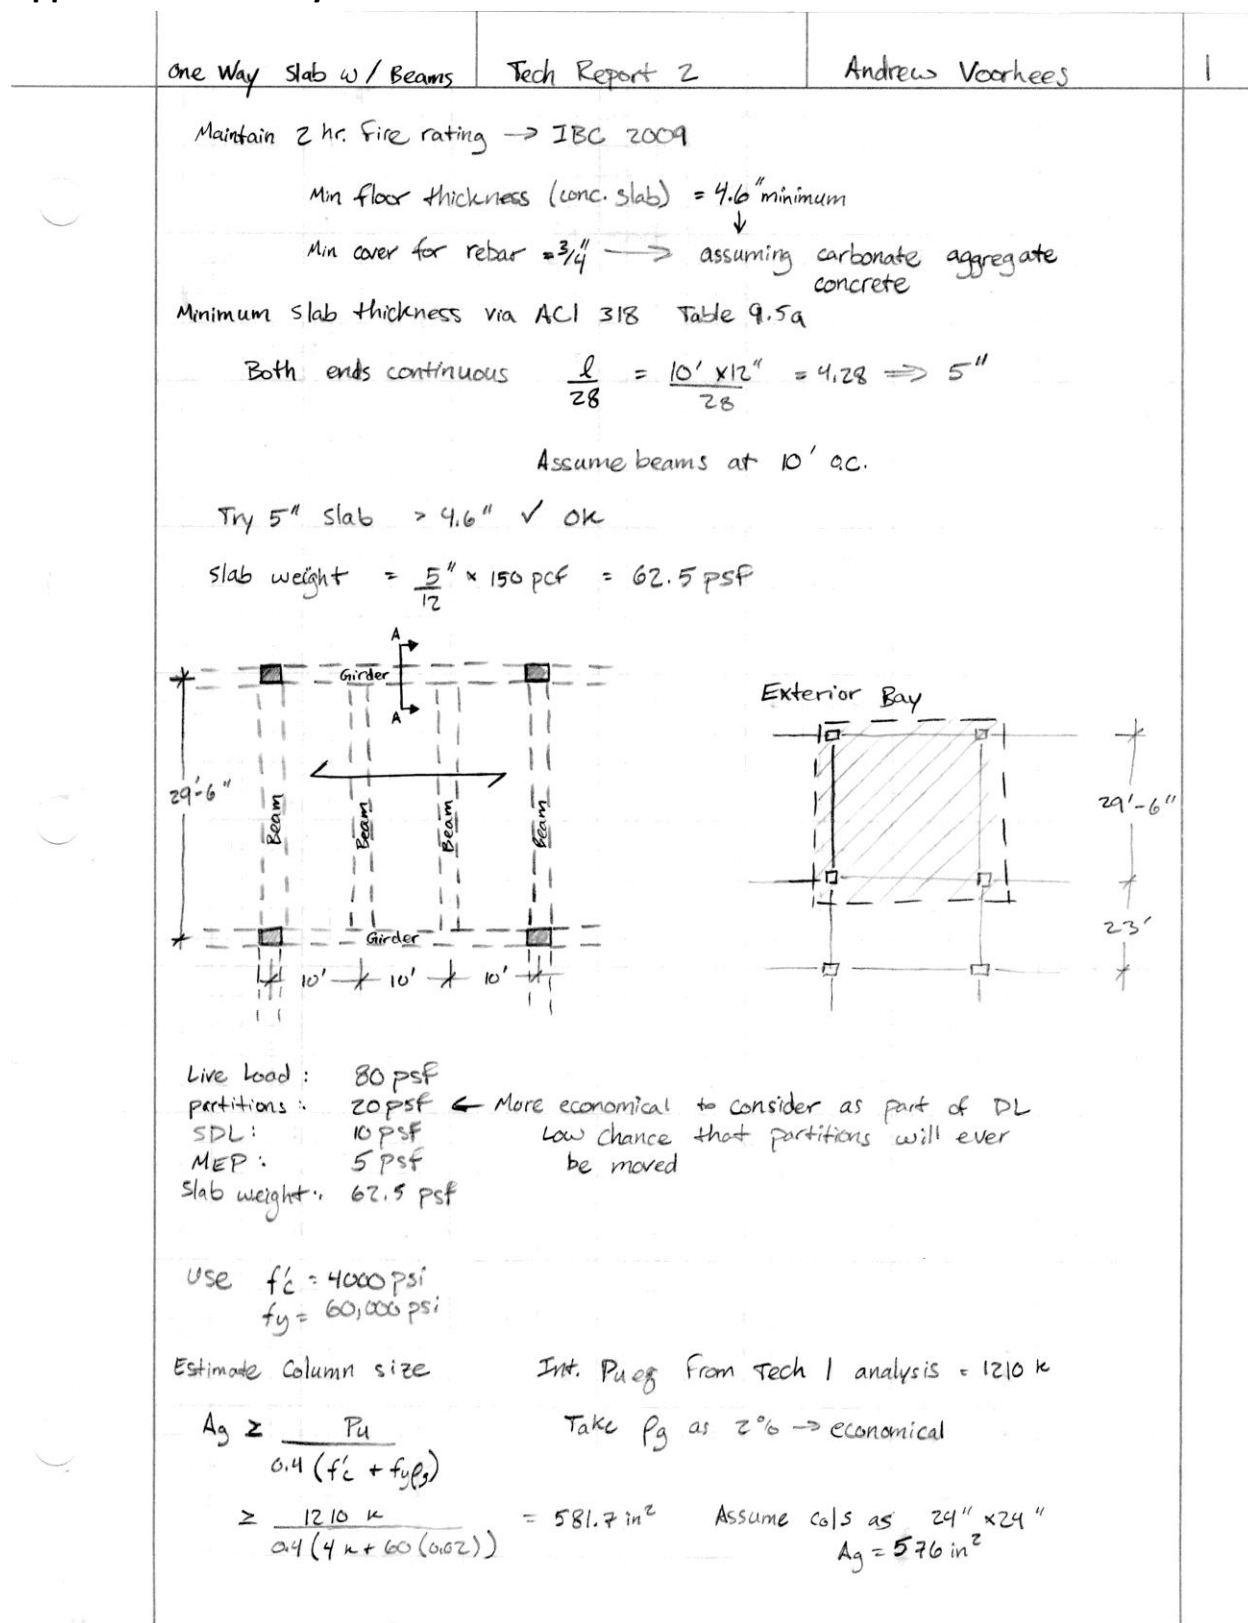 One Way Slab w/ Beams
Tech Report 2
Andrew Voorhees
1
Maintain 2 hr. Fire rating → IBC 2009
Min floor thickness (conc. slab) = 4.6" minimum
↓
Min cover for rebar = 3/4" → assuming carbonate aggregate
concrete
Minimum slab thickness via ACI 318 Table 9.5a
Both ends continuous l/28 = 10' x12"/28 = 4.28 ⇒ 5"
Assume beams at 10' o.c.
Try 5" slab > 4.6" ✓ OK
Slab weight = 5"/12 × 150 pcf = 62.5 psf
A
Girder
A
29'-6"
Beam
Beam
Beam
Beam
Girder
10' 10' 10'
Exterior Bay
29'-6"
23'
Live Load: 80 psf
partitions: 20 psf ← More economical to consider as part of DL
SDL: 10 psf Low chance that partitions will ever
MEP: 5 psf be moved
Slab weight: 62.5 psf
Use f'c = 4000 psi
fy = 60,000 psi
Estimate Column size
Int. Pu eq From Tech 1 analysis = 1210 k
Ag ≥ Pu/0.4(f'c + fyρg)
Take ρg as 2% → economical
≥ 1210 k/0.4(4k + 60(0.02)) = 581.7 in² Assume cols as 24" x24"
Ag = 576 in²